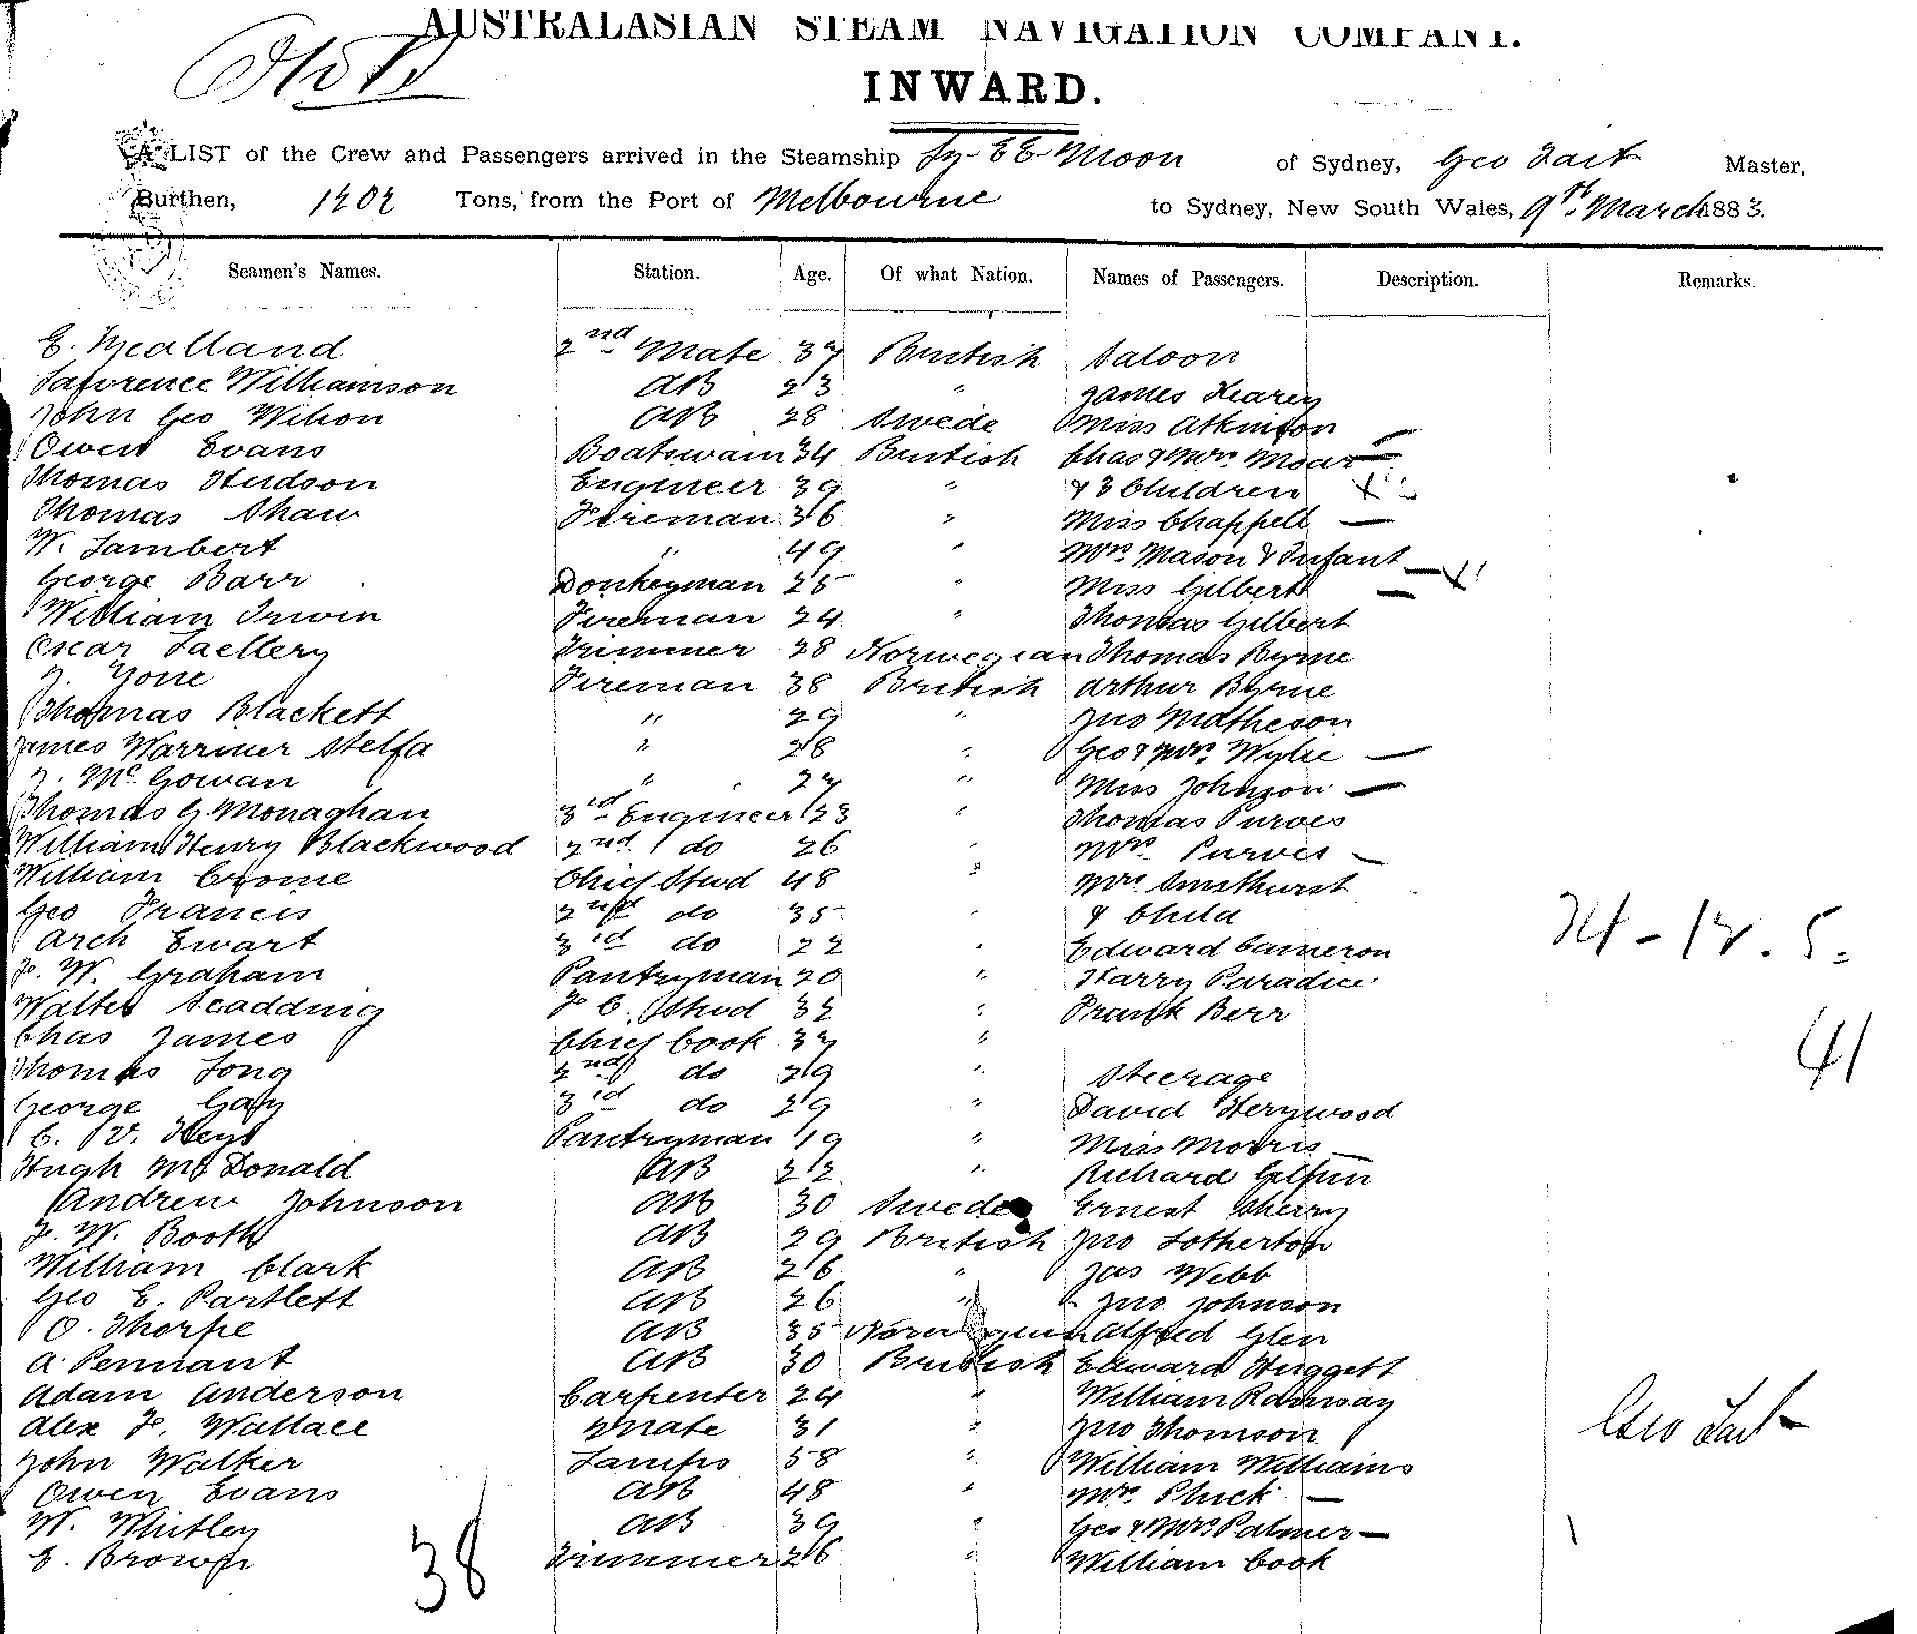 AUSTRALASIAN STEAM NAVIGATION COMPANY.
INWARD.
A LIST of the Crew and Passengers arrived in the Steamship Ly-EE-Moon of Sydney, Geo Tait Master,
Burthen, 1202 Tons, from the Port of Melbourne to Sydney, New South Wales, 9th March 1883.
Seamen's Names. Station. Age. Of what Nation. Names of Passengers. Description. Remarks.
E. 2nd Mate 37 British Saloon
Lawrence Williamson AB 23 " James Hearey
John Geo Wilson AB 28 Swede Miss Atkinson
Owen Evans Boatswain 34 British Chas & Mrs Moar —
Thomas Hudson Engineer 39 " & 3 Children
Thomas Shaw Fireman 36 " Miss Chappell —
W. Lambert " 49 " Mrs Mason & Infant —
George Barr Donkeyman 25 " Miss Gilbert —
William Irwin Fireman 24 " Thomas Gilbert
Oscar Trimmer 28 Norwegian Thomas Byrne
J. Fireman 38 British Arthur Byrne
Thomas Blackett " 29 " Jno Matheson
James Warriner Stelfa " 28 " Geo & Mrs Wylie —
J. McGowan " 27 " Miss Johnson —
Thomas G Monaghan 3rd Engineer 23 " Thomas Purves
William Henry Blackwood 2nd do 26 " Mrs Purves —
William Crome Chief Stwd 48 " Mrs Smethurst
Geo Francis 2nd do 35 " & Child
Arch Ewart 3rd do 22 " Edward Cameron
F. W. Graham Pantryman 20 " Harry Paradice
Walter Scadding F. C. Stwd 32 " Frank Berr
Chas James Chief Cook 37 "
Thomas Long 2nd do 29 " Steerage
George Gay 3rd do 29 " David Herywood
C. V. Heys Pantryman 19 " Miss Morris —
Hugh McDonald AB 22 " Richard Gilpin
Andrew Johnson AB 30 Swede Ernest Sherry
F. W. Booth AB 29 British Jno Lotherton
William Clark AB 26 " Jas Webb
Geo E. Partlett AB 26 " Jno Johnson
O. Thorpe AB 35 Norwegian Alfred Glen
A. Pennant AB 30 British Edward Huggett
Adam Anderson Carpenter 24 " William Ramsay
Alex F. Wallace Mate 31 " Jno Thomson
John Walker Lamps 58 " William Williams
Owen Evans AB 48 " Mrs Pluck —
W. Whitley AB 39 " Geo & Mrs Palmer —
E. Brown Trimmer 26 " William Cook
24 - 12. 5.
41
Geo Tait
38